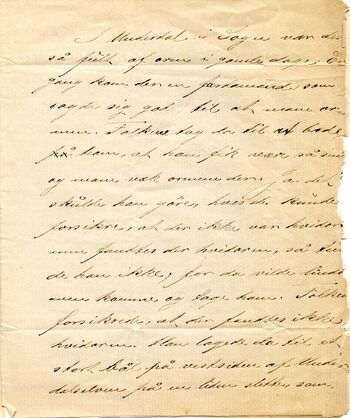 I Underdal i Sogn var der
så fuldt af orm i gamle dage. En
gang kom der en fordømand, som
sagde sig god til at mane or-
men. Folkene tog da til at bede
på ham, at han fik være så snil
og mane væk ormene der. Ja det
skulde han göre, hvis de kunde
forsikre, at der ikke var hvidorm
men fandtes der hvidorm, så tur-
de han ikke; for da vilde
men komme og tage ham. Folkene
forsikred, at der fandtes ikke
hvidorm. Han lagede da til et
stort bål på vestsiden af Under
dalselven på en liden slette, som